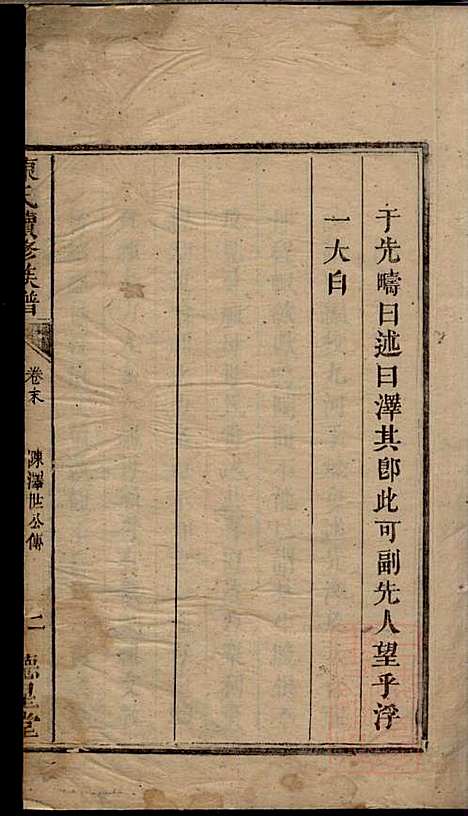 于先疇曰述曰澤其卽此可副先人望乎浮
一大白
陳氏續修族譜
卷末
陳澤世公傳
二
德星堂